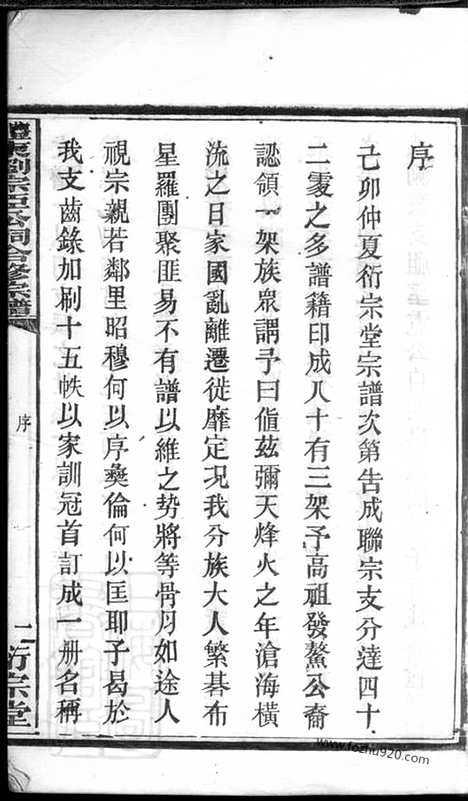 序
己卯仲夏衍宗堂宗譜次第告成聯宗支分達四十
二處之多譜籍印成八十有三架予高祖發鰲公裔
認領一架族衆謂予曰值茲彌天烽火之年滄海橫
流之日家國亂離遷徙靡定况我分族大人繁碁布
星羅團聚匪易不有譜以維之势將等骨肉如途人
視宗親若鄰里昭穆何以序彜倫何以匡耶子曷於
我支齒錄加刷十五帙以家訓冠首訂成一册名稱
醴東劉宗臣公祠合修宗譜
序
二
衍宗堂
www.fozhu920.com